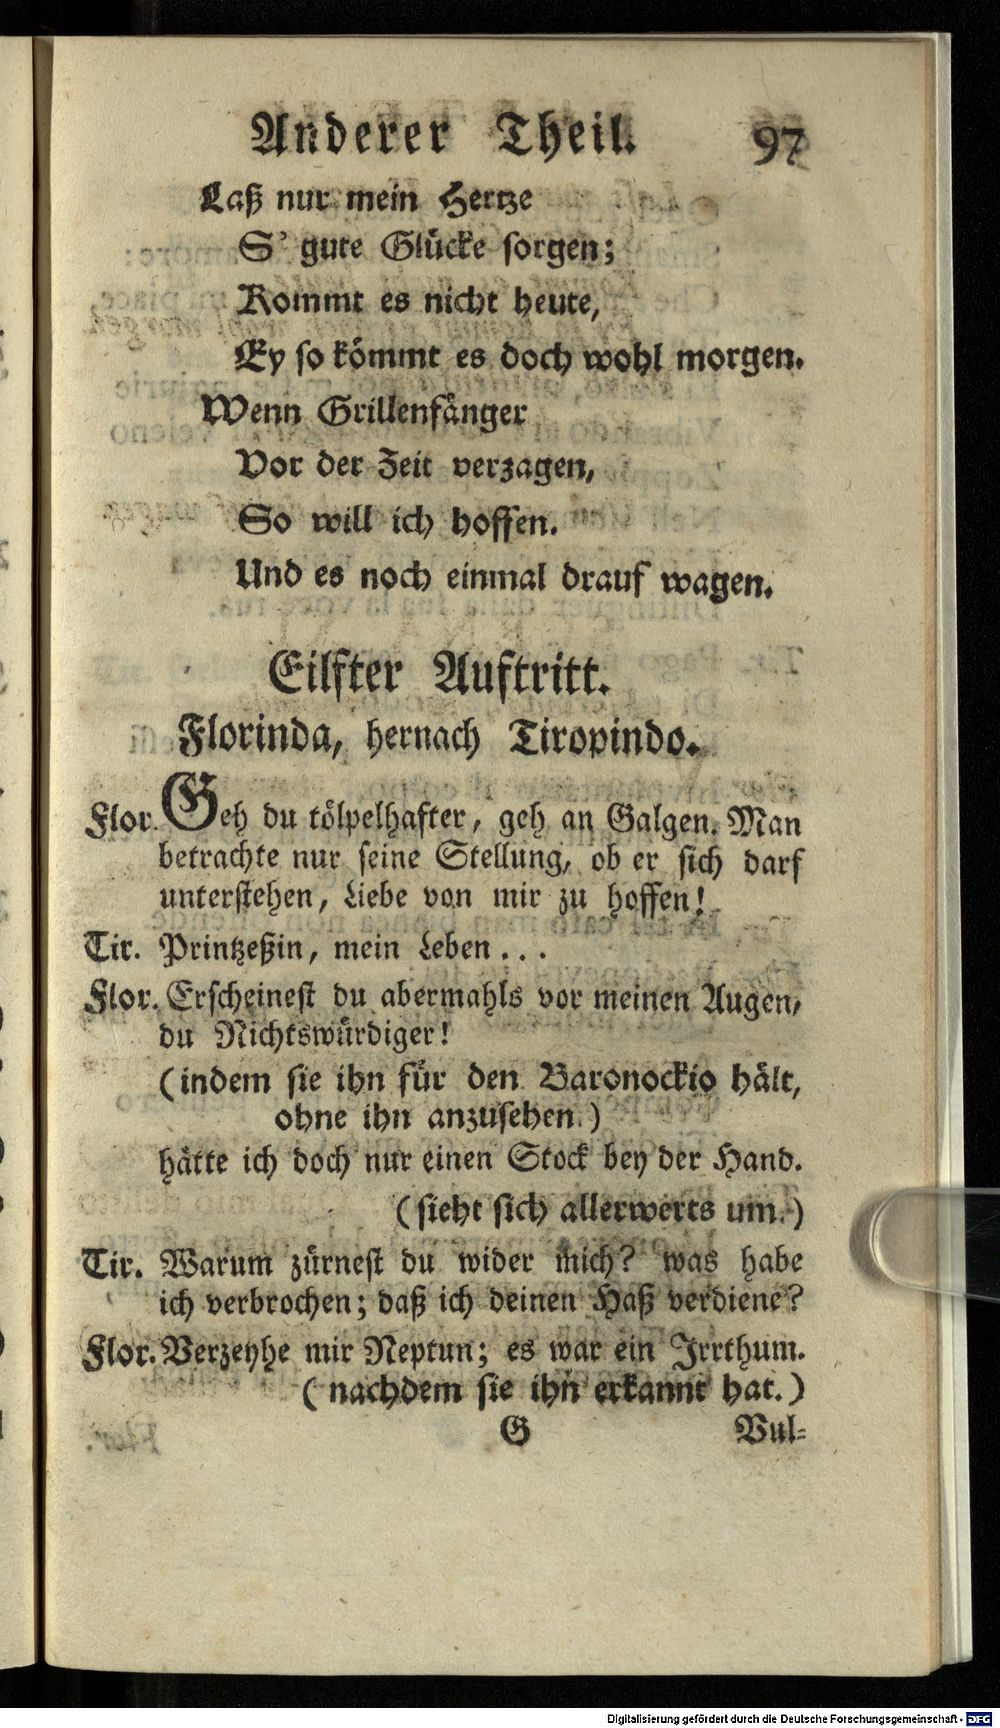 Anderer Theil. 97
Laß nur mein Hertze
S' gute Glücke sorgen;
Kommt es nicht heute,
Ey so kömmt es doch wohl morgen.
Wenn Grillenfänger
Vor der Zeit verzagen,
So will ich hoffen.
Und es noch einmal drauf wagen.
Eilfter Auftritt.
Florinda, hernach Tiropindo.
Flor. Geh du tölpelhafter, geh an Galgen. Man
betrachte nur seine Stellung, ob er sich darf
unterstehen, Liebe von mir zu hoffen!
Tir. Printzeßin, mein Leben . . .
Flor. Erscheinest du abermahls vor meinen Augen,
du Nichtswürdiger!
(indem sie ihn für den Baronockio hält,
ohne ihn anzusehen.)
hätte ich doch nur einen Stock bey der Hand.
(sieht sich allerwerts um.)
Tir. Warum zürnest du wider mich? was habe
ich verbrochen; daß ich deinen Haß verdiene?
Flor. Verzeyhe mir Neptun; es war ein Irrthum.
(nachdem sie ihn erkannt hat.)
G Vul-
Digitalisierung gefördert durch die Deutsche Forschungsgemeinschaft - DFG